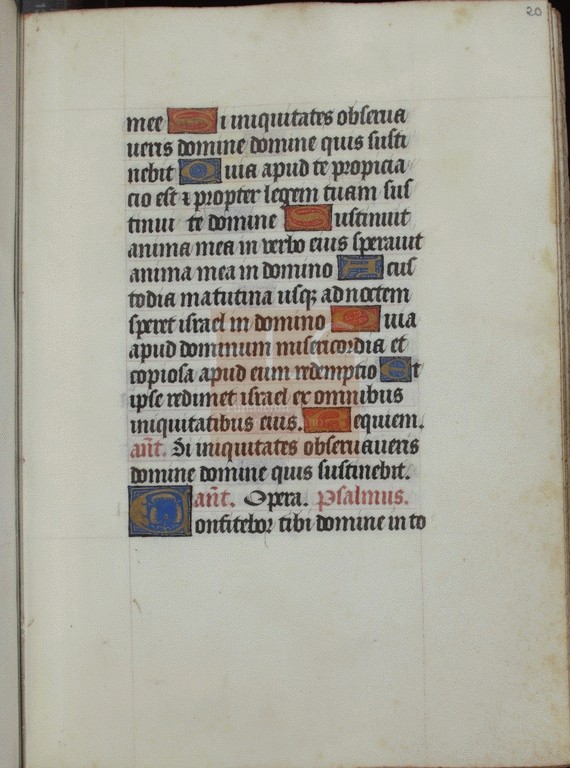 20
mee Si iniquitates obserua
ueris domine domine quis susti
nebit Quia apud te propicia
cio est ⁊ propter legem tuam sus
tinui te domine Sustinuit
anima mea in verbo eius sperauit
anima mea in domino A cus
todia matutina usqꝫ ad noctem
speret israel in domino Quia
apud dominum misericordia et
copiosa apud eum redemptio Et
ipse redimet israel ex omnibus
iniquitatibus eius. Requiem.
añt. Si iniquitates obseruaueris
domine domine quis sustinebit.
añt. Opera. Psalmus.
Confitebor tibi domine in to